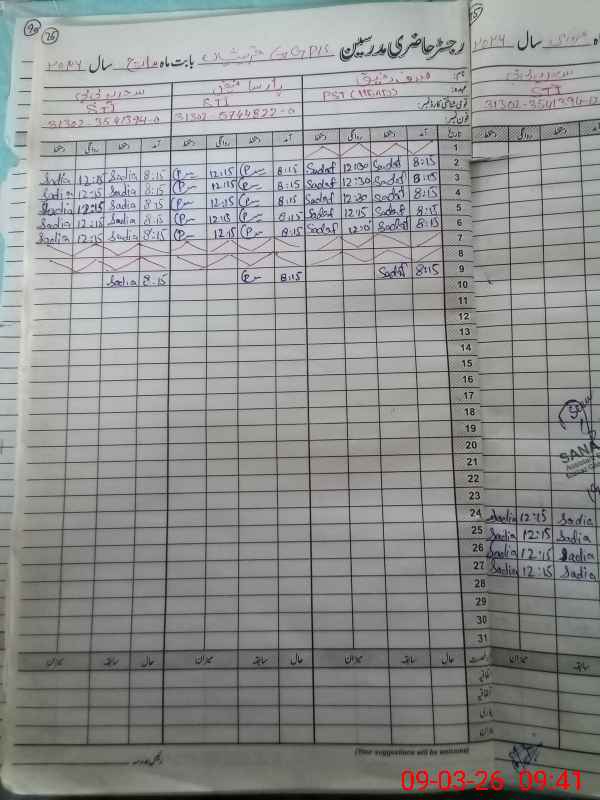 90 26
رجسٹر حاضری مدرسین GGPS بابت ماہ مارچ سال ۲۰۲۶
نام:
عہدہ: PST (HEAD) STI STI
قومی شناختی کارڈ نمبر: 31302-5744822-0 31302-3541394-0
فون نمبر:
تاریخ آمد دستخط روانگی دستخط آمد دستخط روانگی دستخط آمد دستخط روانگی دستخط
1
2 8:15 Sadaf 12:30 Sadaf 8:15 12:15 8:15 Sadia 12:15 Sadia
3 8:15 Sadaf 12:30 Sadaf 8:15 12:15 8:15 Sadia 12:15 Sadia
4 8:15 Sadaf 12:30 Sadaf 8:15 12:15 8:15 Sadia 12:15 Sadia
5 8:15 Sadaf 12:15 Sadaf 8:15 12:15 8:15 Sadia 12:15 Sadia
6 8:15 Sadaf Sadaf 8:15 12:15 8:15 Sadia 12:15 Sadia
7
8
9 8:15 Sadaf 8:15 8:15 Sadia
10
11
12
13
14
15
16
17
18
19
20
21
22
23
24
25
26
27
28
29
30
31
رخصت حال سابقہ میزان حال سابقہ میزان حال سابقہ میزان
اتفاقیہ
بیماری
میزان
(Your suggestions will be welcome)
سال ۲۰۲۶
STI
دستخط روانگی دستخط
SANA
Sadia 12:15 Sadia
Sadia 12:15 Sadia
Sadia 12:15 Sadia
Sadia 12:15 Sadia
میزان سابقہ
09-03-26 09:41